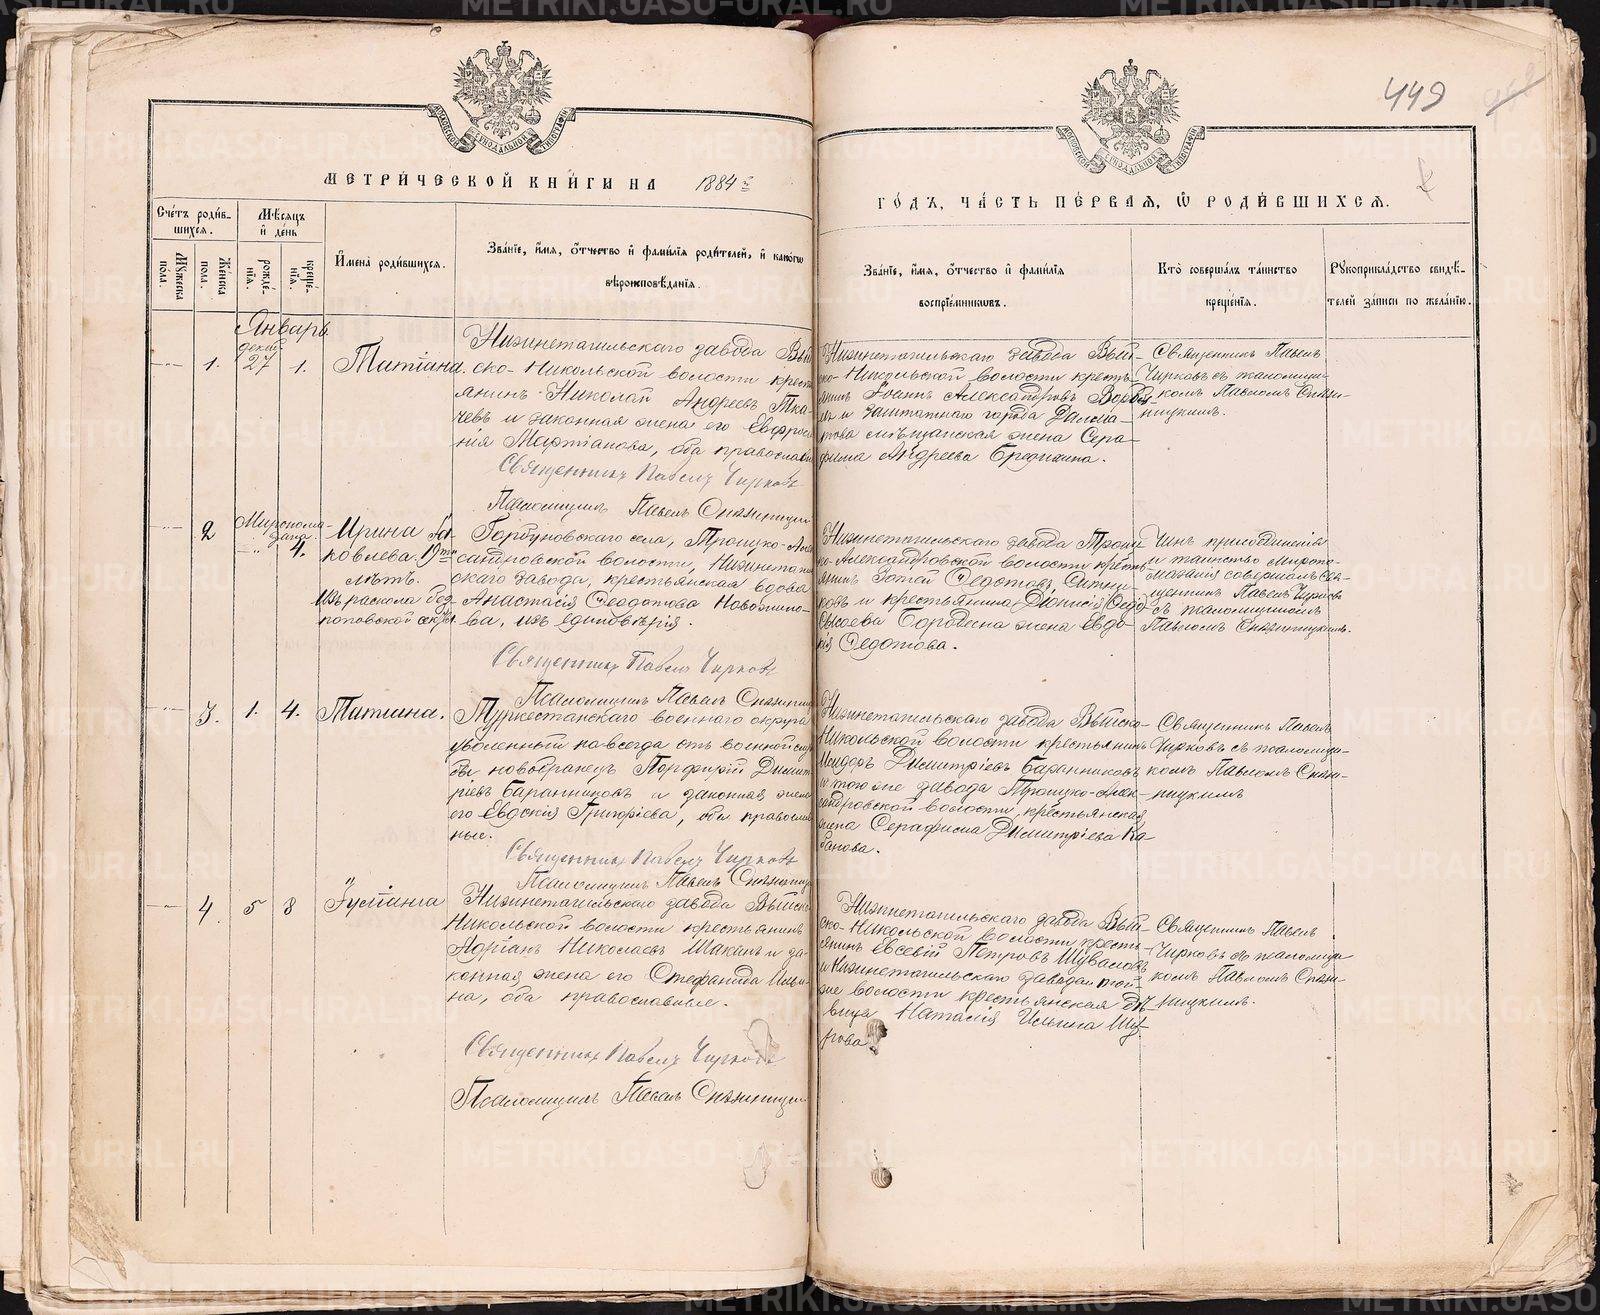 449
МОСКОВСКОЙ СѴНОДАЛЬНОЙ ТИПОГРАФІИ
МОСКОВСКОЙ СѴНОДАЛЬНОЙ ТИПОГРАФІИ
МЕТРИ́ЧЕСКОЙ КНИ́ГИ НА 1884 г.
ГО́ДЪ, ЧА́СТЬ ПЕ́РВАЯ, Ѡ РОДИ́ВШИХСЯ.
Сче́тъ роди́в-
шихся.
Мѣ́сяцъ
и҆ де́нь
Мꙋ́жеска
по́ла.
Же́нска
по́ла.
рожде́-
нїя.
креще́-
нїя.
И҆мена̀ роди́вшихся.
Зва́нїе, и҆́мя, ѻ҆́тчество и҆ фами́лїя роди́телей, и҆ како́гѡ
вѣроисповѣ́данїя.
Зва́нїе, и҆́мя, ѻ҆́тчество и҆ фами́лїя
воспрїе́мникѡвъ.
Кто̀ соверша́лъ та́инство
креще́нїя.
Рꙋкоприкла́дство свидѣ́-
телей за́писи по жела́нїю.
Январь.
1.
декаб.
27
1.
Татіана.
Нижнетагильскаго завода Вый
ско-Николъской волости крест
янинъ Николай Андреевъ Тка-
чевъ и законная жена его Евфроси
нія Мартіанова, оба православн
Священникъ Павелъ Чирковъ
Псаломщикъ Павелъ
Нижнетагильскаго завода Вый-
ско-Никольской волости кресть-
янинъ Іоаннъ Александровъ
и заштатнаго города Далма-
това мѣщанская жена Сера-
фима Андреева
Священникъ Павелъ
Чирковъ съ псаломщи-
комъ Павломъ
2
4.
Ирина Іа-
ковлева 19ти
лѣтъ.
Изъ раскола
поповской секты
Горбуновскаго села, Троицко-Алек
сандровской волости, Нижнетагил
скаго завода, крестьянская вдова
Анастасія Ѳеодотова Новожило-
ва, изъ единовѣрія.
Священникъ Павелъ Чирковъ
Псаломщикъ Павелъ
Нижнетагильскаго завода Троиц
ко-Александровской волости кресть-
янинъ Зотей Ѳедотовъ Ситни-
ковъ и крестьянина Діонисія
жена Евдо-
кія Ѳедотова.
Чинъ присоединенія
и таинство Мѵропо-
мазанія совершалъ Свя-
щенникъ Павелъ Чирковъ
съ псаломщикомъ
Павломъ
3.
1.
4.
Татіана.
Туркестанскаго военнаго округа
уволенный навсегда отъ военной служ
бы новобранецъ Порфирій Димит
ріевъ Баранниковъ и законная жена
его Евдокія Григоріева, оба православ
ные.
Священникъ Павелъ Чирковъ
Псаломщикъ Павелъ
Нижнетагильскаго завода Выйско-
Никольской волости крестьянинъ
Исидоръ Димитріевъ Баранниковъ
и того же завода Троицко-Алек-
сандровской волости, крестьянская
жена Серафима Димитріева Ка-
банова.
Священникъ Павелъ
Чирковъ съ псаломщи-
комъ Павломъ
4.
5
8
Іуліанія
Нижнетагильскаго завода Выйско
Никольской волости крестьянинъ
Адріанъ Николаевъ Шакинъ и за-
конная жена его Стефанида Ильи-
на, оба православные.
Священникъ Павелъ Чирковъ
Псаломщикъ Павелъ
Нижнетагильскаго завода Вый-
ско-Никольской волости кресть-
янинъ Евсевій Петровъ Шуваловъ
и Нижнетагильскаго завода той-
же волости крестьянская дѣ-
вица Наталія Ильина
Священникъ Павелъ
Чирковъ съ псаломщи-
комъ Павломъ
METRIKI.GASO-URAL.RU